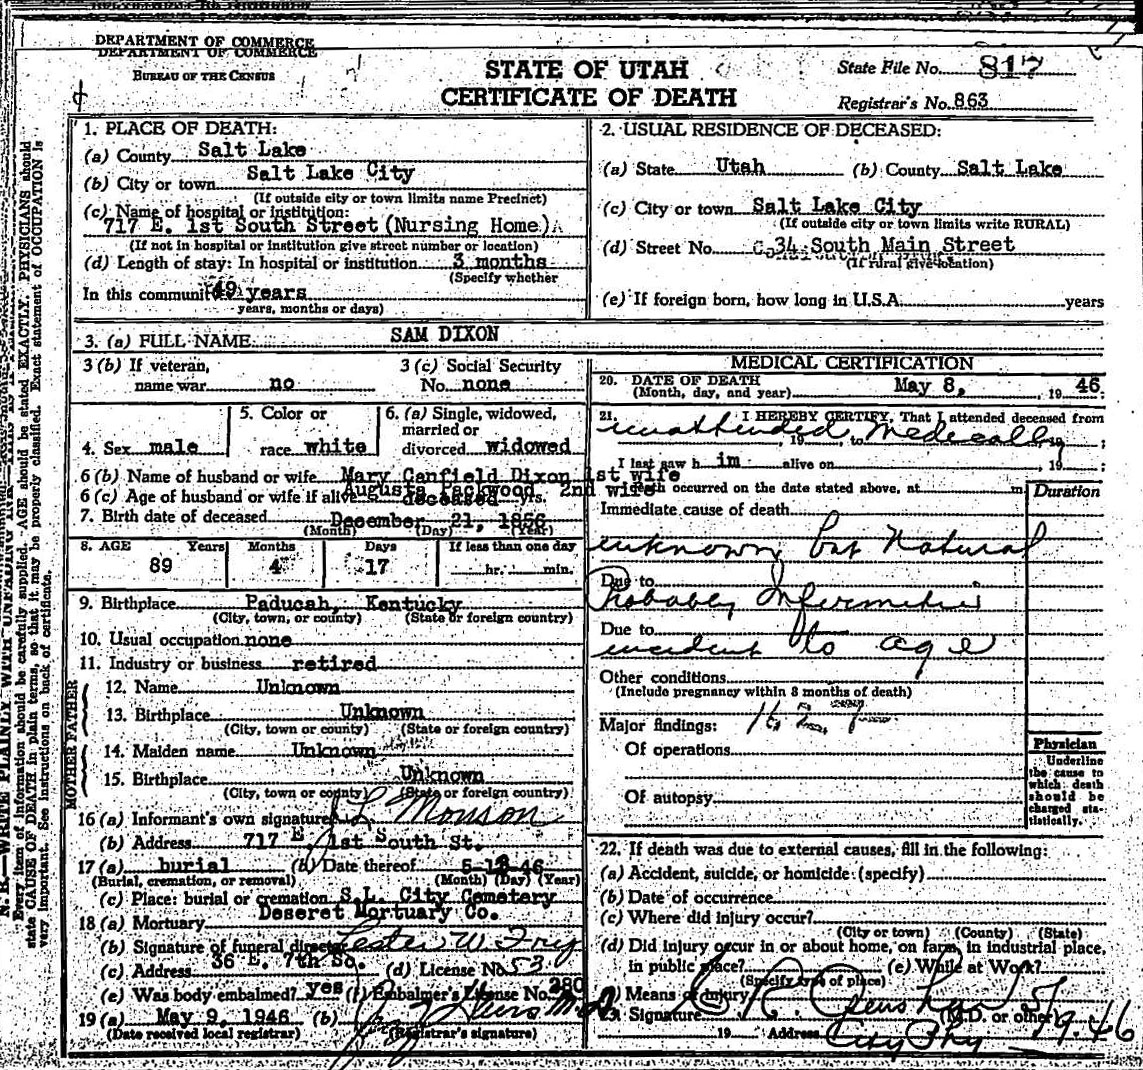 DEPARTMENT OF COMMERCE
BUREAU OF THE CENSUS
STATE OF UTAH
CERTIFICATE OF DEATH
State File No. 817
Registrar's No. 863
1. PLACE OF DEATH:
(a) County Salt Lake
(b) City or town Salt Lake City
(If outside city or town limits name Precinct)
(c) Name of hospital or institution:
717 E. 1st South Street (Nursing Home)
(If not in hospital or institution give street number or location)
(d) Length of stay: In hospital or institution 3 months
(Specify whether
In this community 49 years
years, months or days)
2. USUAL RESIDENCE OF DECEASED:
(a) State Utah (b) County Salt Lake
(c) City or town Salt Lake City
(If outside city or town limits write RURAL)
(d) Street No. 34 South Main Street
(If rural give location)
(e) If foreign born, how long in U.S.A. years
3. (a) FULL NAME SAM DIXON
3 (b) If veteran, name war no
3 (c) Social Security No. none
4. Sex male
5. Color or race white
6. (a) Single, widowed, married or divorced widowed
6 (b) Name of husband or wife Mary Canfield Dixon 1st wife
Augusta Packwood 2nd wife
6 (c) Age of husband or wife if alive deceased yrs.
7. Birth date of deceased December 21, 1856
(Month) (Day) (Year)
8. AGE Years Months Days If less than one day
89 4 17 hr. min.
9. Birthplace Paducah, Kentucky
(City, town, or county) (State or foreign country)
10. Usual occupation none
11. Industry or business retired
FATHER
12. Name Unknown
13. Birthplace Unknown
(City, town or county) (State or foreign country)
MOTHER
14. Maiden name Unknown
15. Birthplace Unknown
(City, town or county) (State or foreign country)
16 (a) Informant's own signature L Monson
(b) Address 717 E 1st South St.
17 (a) burial (b) Date thereof 46
(Burial, cremation, or removal) (Month) (Day) (Year)
(c) Place: burial or cremation S.L. City Cemetery
18 (a) Mortuary Deseret Mortuary Co.
(b) Signature of funeral director Lester W Fry
(c) Address 36 E. 7th So. (d) License No. 53
(e) Was body embalmed? yes (f) Embalmer's License No. 280
19 (a) May 9, 1946 (b)
(Date received local registrar) (Registrar's signature)
MEDICAL CERTIFICATION
20. DATE OF DEATH
(Month, day, and year) May 8, 19 46
21. I HEREBY CERTIFY, That I attended deceased from
unattended, 19 to Medically, 19 ;
I last saw h im alive on , 19 ;
Death occurred on the date stated above, at m.
Duration
Immediate cause of death
unknown but Natural
Due to
Probably Infirmities
Due to
incident to age
Other conditions
(Include pregnancy within 3 months of death)
Major findings:
Of operations
Of autopsy
Physician
Underline the cause to which death should be charged statistically.
22. If death was due to external causes, fill in the following:
(a) Accident, suicide, or homicide (specify)
(b) Date of occurrence
(c) Where did injury occur?
(City or town) (County) (State)
(d) Did injury occur in or about home, on farm, in industrial place,
in public place? (e) While at Work?
(Specify type of place)
(f) Means of injury
23. Signature (M.D. or other)
19 Address City Phy
N. B.—WRITE PLAINLY WITH UNFADING
Every item of information should be carefully supplied. AGE should be stated EXACTLY. PHYSICIANS should
state CAUSE OF DEATH in plain terms, so that it may be properly classified. Exact statement of OCCUPATION is
very important. See instructions on back of certificate.